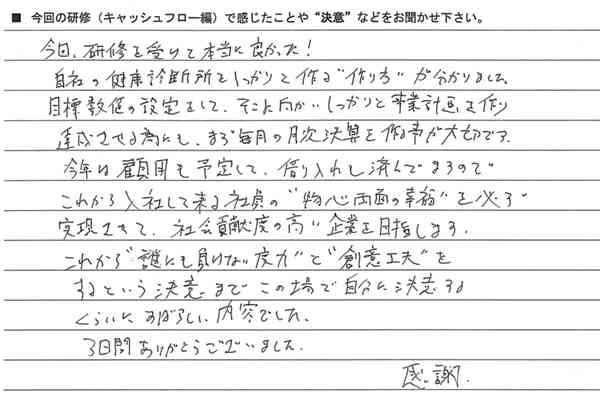 ■ 今回の研修（キャッシュフロー編）で感じたことや“決意”などをお聞かせ下さい。
今回、研修を受けて本当に良かった！
自社の健康診断所をしっかりと作る“作り方”が分かりました。
目標数値の設定をして、そこに向かいしっかりと事業計画を作り
達成させる為にも、まず毎月の月次決算を作る事が大切です。
今年は雇用も予定して、借り入れも済んでますので
これから入社して来る社員の“物心両面の幸福”を必ず
実現させて、社会貢献度の高い企業を目指します。
これから“誰にも負けない度力”と“創意工夫”を
するという決意までこの場で自分に決意する
くらいにすばらしい内容でした。
3日間ありがとうございました。
感謝.